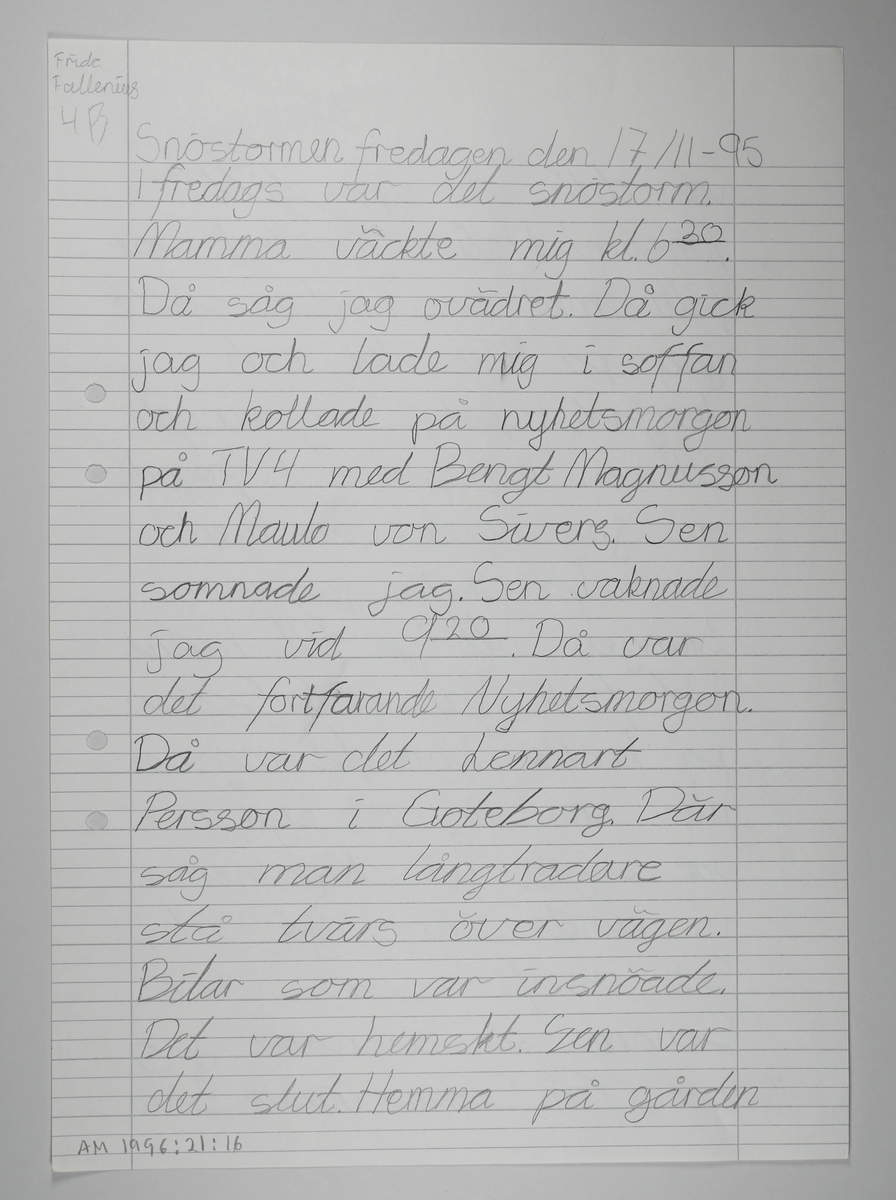 Frida
Fallenius
4B
Snöstormen fredagen den 17/11-95
I fredags var det snöstorm.
Mamma väckte mig kl. 6 30.
Då såg jag ovädret. Då gick
jag och lade mig i soffan
och kollade på nyhetsmorgon
på TV4 med Bengt Magnusson
och Maulo von Sivers. Sen
somnade jag. Sen vaknade
jag vid 9 20. Då var
det fortfarande Nyhetsmorgon.
Då var det Lennart
Persson i Göteborg. Där
såg man långtradare
stå tvärs över vägen.
Bilar som var insnöade.
Det var hemskt. Sen var
det slut. Hemma på gården
AM 1996:21:16